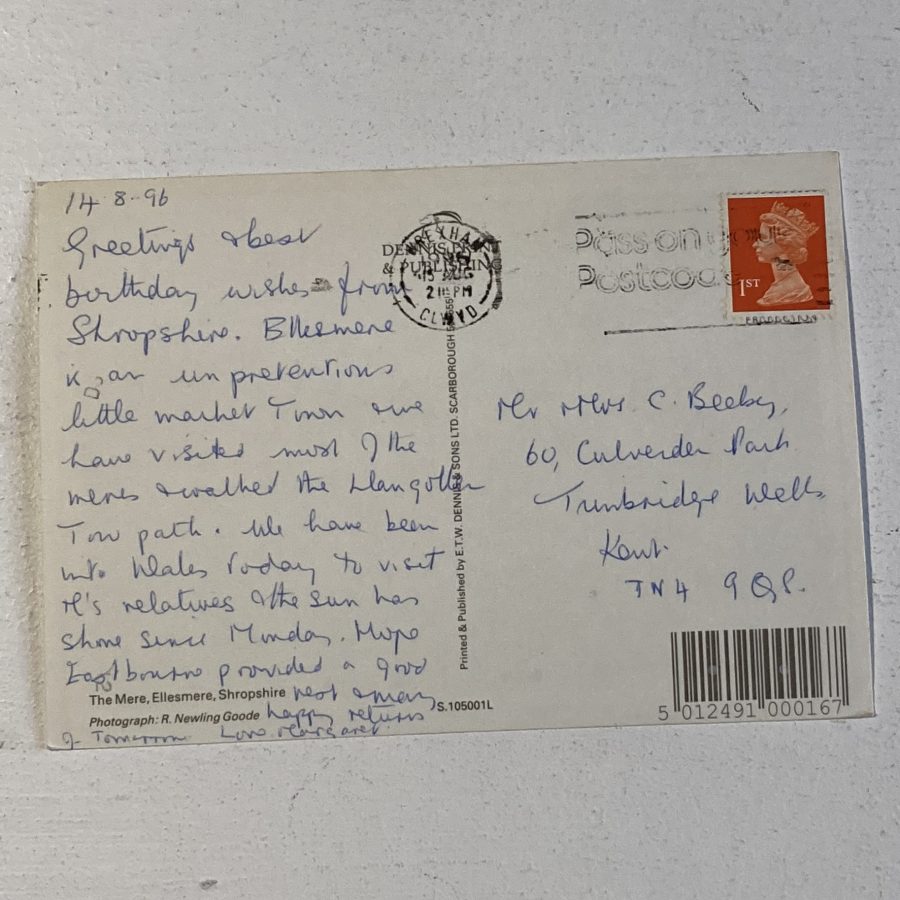 14-8-96
Greetings & best
birthday wishes from
Shropshire. Ellesmere
is an unpretentious
little market Town & we
have visited most of the
meres & walked the Llangollen
Tow path. We have been
into Wales today to visit
H's relatives & the sun has
shone since Monday. Hope
Eastbourne provided a good
rest & many
happy returns
for Tomorrow Love Margaret.
The Mere, Ellesmere, Shropshire
Photograph: R. Newling Goode
S.105001L
DENNIS PRINT
& PUBLISHING
Printed & Published by E.T.W. DENNIS & SONS LTD. SCARBOROUGH
WREXHAM
15 AUG
PM
CLWYD
Pass on your
Postcode
1ST
Mr & Mrs C. Beeby,
60, Culverden Park
Tunbridge Wells
Kent.
TN4 9QP.
5 012491 000167